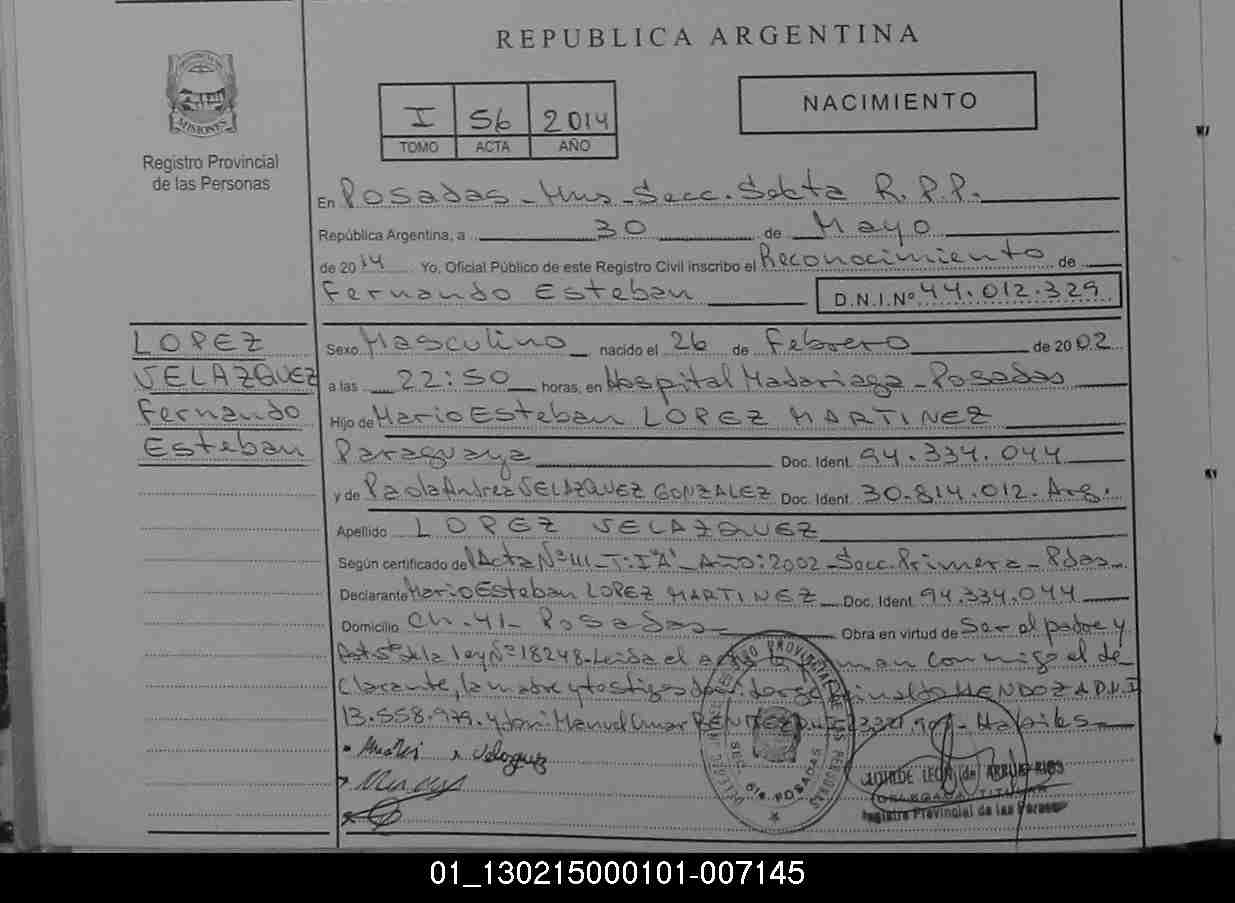 REPUBLICA ARGENTINA
MISIONES
Registro Provincial
de las Personas
I 56 2014
TOMO ACTA AÑO
NACIMIENTO
En Posadas - Mnes - Secc. Sexta R.P.P.
República Argentina, a 30 de Mayo
de 2014 Yo, Oficial Público de este Registro Civil inscribo el Reconocimiento de
Fernando Esteban D.N.I.Nº 44.012.329
LOPEZ
VELAZQUEZ
Fernando
Esteban
Sexo Masculino nacido el 26 de Febrero de 2002
a las 22:50 horas, en Hospital Madariaga - Posadas
Hijo de Mario Esteban LOPEZ MARTINEZ
Paraguaya Doc. Ident. 94.334.044
y de Paola Andrea VELAZQUEZ GONZALEZ Doc. Ident. 30.814.012. Arg.
Apellido LOPEZ VELAZQUEZ
Según certificado de Acta Nº 111 - T: I "A" - Año: 2002 - Secc. Primera - Pdas
Declarante Mario Esteban LOPEZ MARTINEZ Doc. Ident. 94.334.044
Domicilio Ch. 41 - Posadas Obra en virtud de Ser el padre y
de la ley Nº 18248. Leida el acta la firman conmigo el de-
clarante, la madre y testigos Jorge Reinaldo MENDOZA D.N.I
13.558.979. y Manuel Omar BENITEZ
Velazquez
REGISTRO PROVINCIAL DE LAS PERSONAS
SEC. 6ta. POSADAS
DELEGADA TITULAR
Registro Provincial de las Personas
01_130215000101-007145